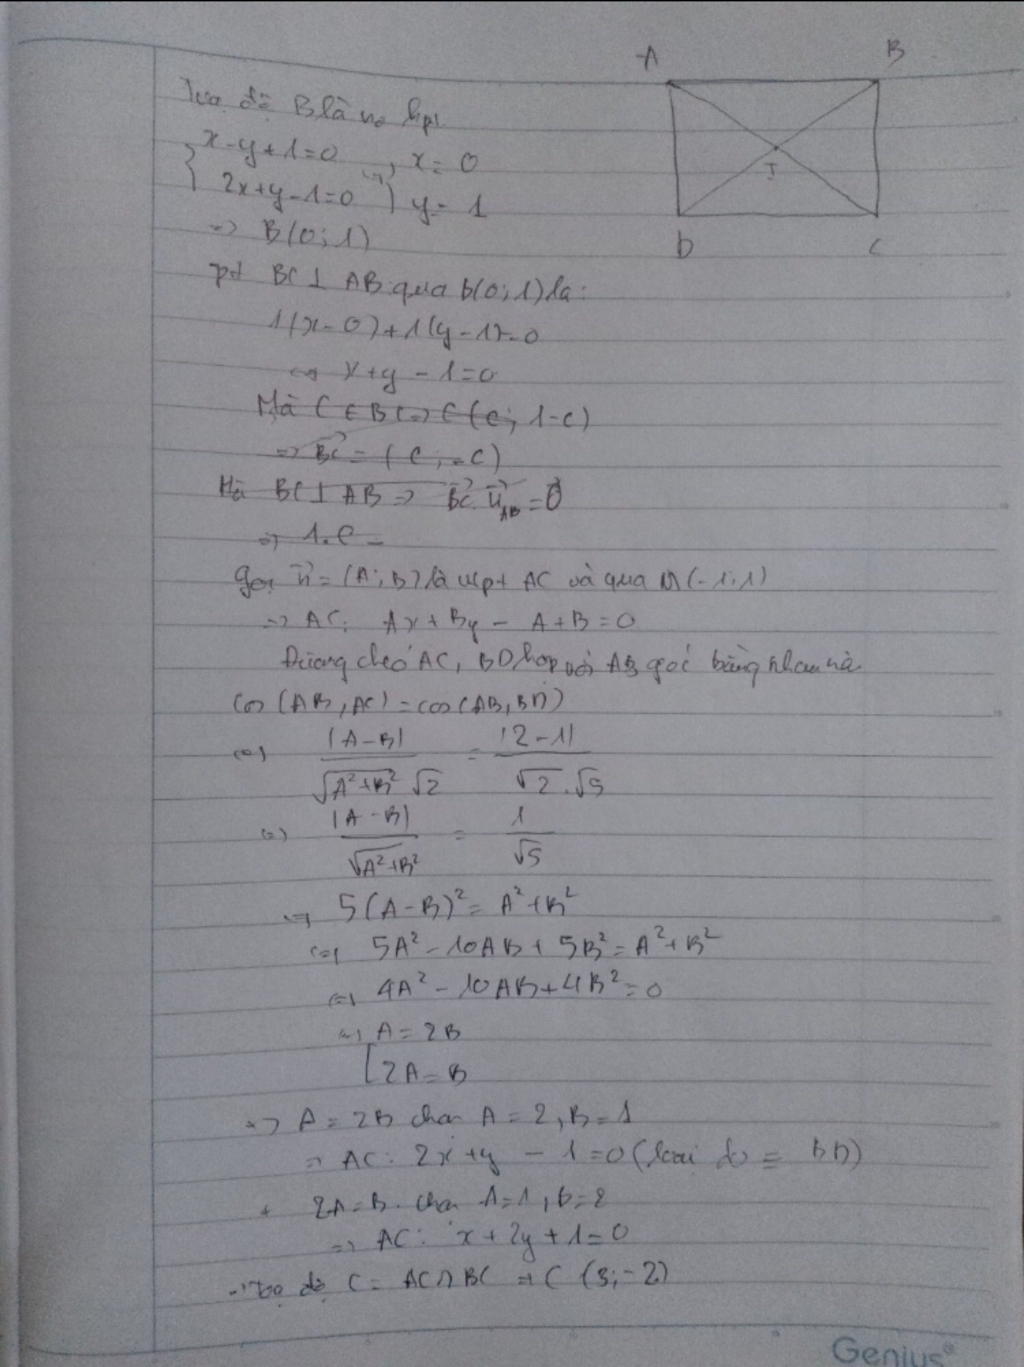 A B
Toạ độ B là no hpt
{ x-y+1=0 , x=0
2x+y-1=0 <=> } y=1
=> B(0;1)
I
D C
pt BC ⊥ AB qua B(0;1) là:
1(x-0)+1(y-1)=0
<=> x+y-1=0
Mà C ∈ BC => C(c; 1-c)
=> BC = (c; -c)
Mà BC ⊥ AB => BC. u_AB = 0
=> 1.c -
gọi n = (A;B) là vtpt AC và qua M(-1;1)
=> AC: Ax+By - A+B=0
Đường chéo AC, BD hợp với AB góc bằng nhau và
cos(AB, AC) = cos(AB, BD)
<=> |A-B| / √A²+B² √2 = |2-1| / √2.√5
<=> |A-B| / √A²+B² = 1 / √5
<=> 5(A-B)² = A²+B²
<=> 5A² - 10AB + 5B² = A²+B²
<=> 4A² - 10AB + 4B² = 0
<=> A = 2B
[ 2A = B
=> A = 2B chọn A = 2, B = 1
=> AC: 2x+y - 1 = 0 (loại do ≡ BD)
+ 2A = B. chọn A=1, B=2
=> AC: x+2y+1=0
=> toạ độ C = AC ∩ BC => C (3; -2)
Genius